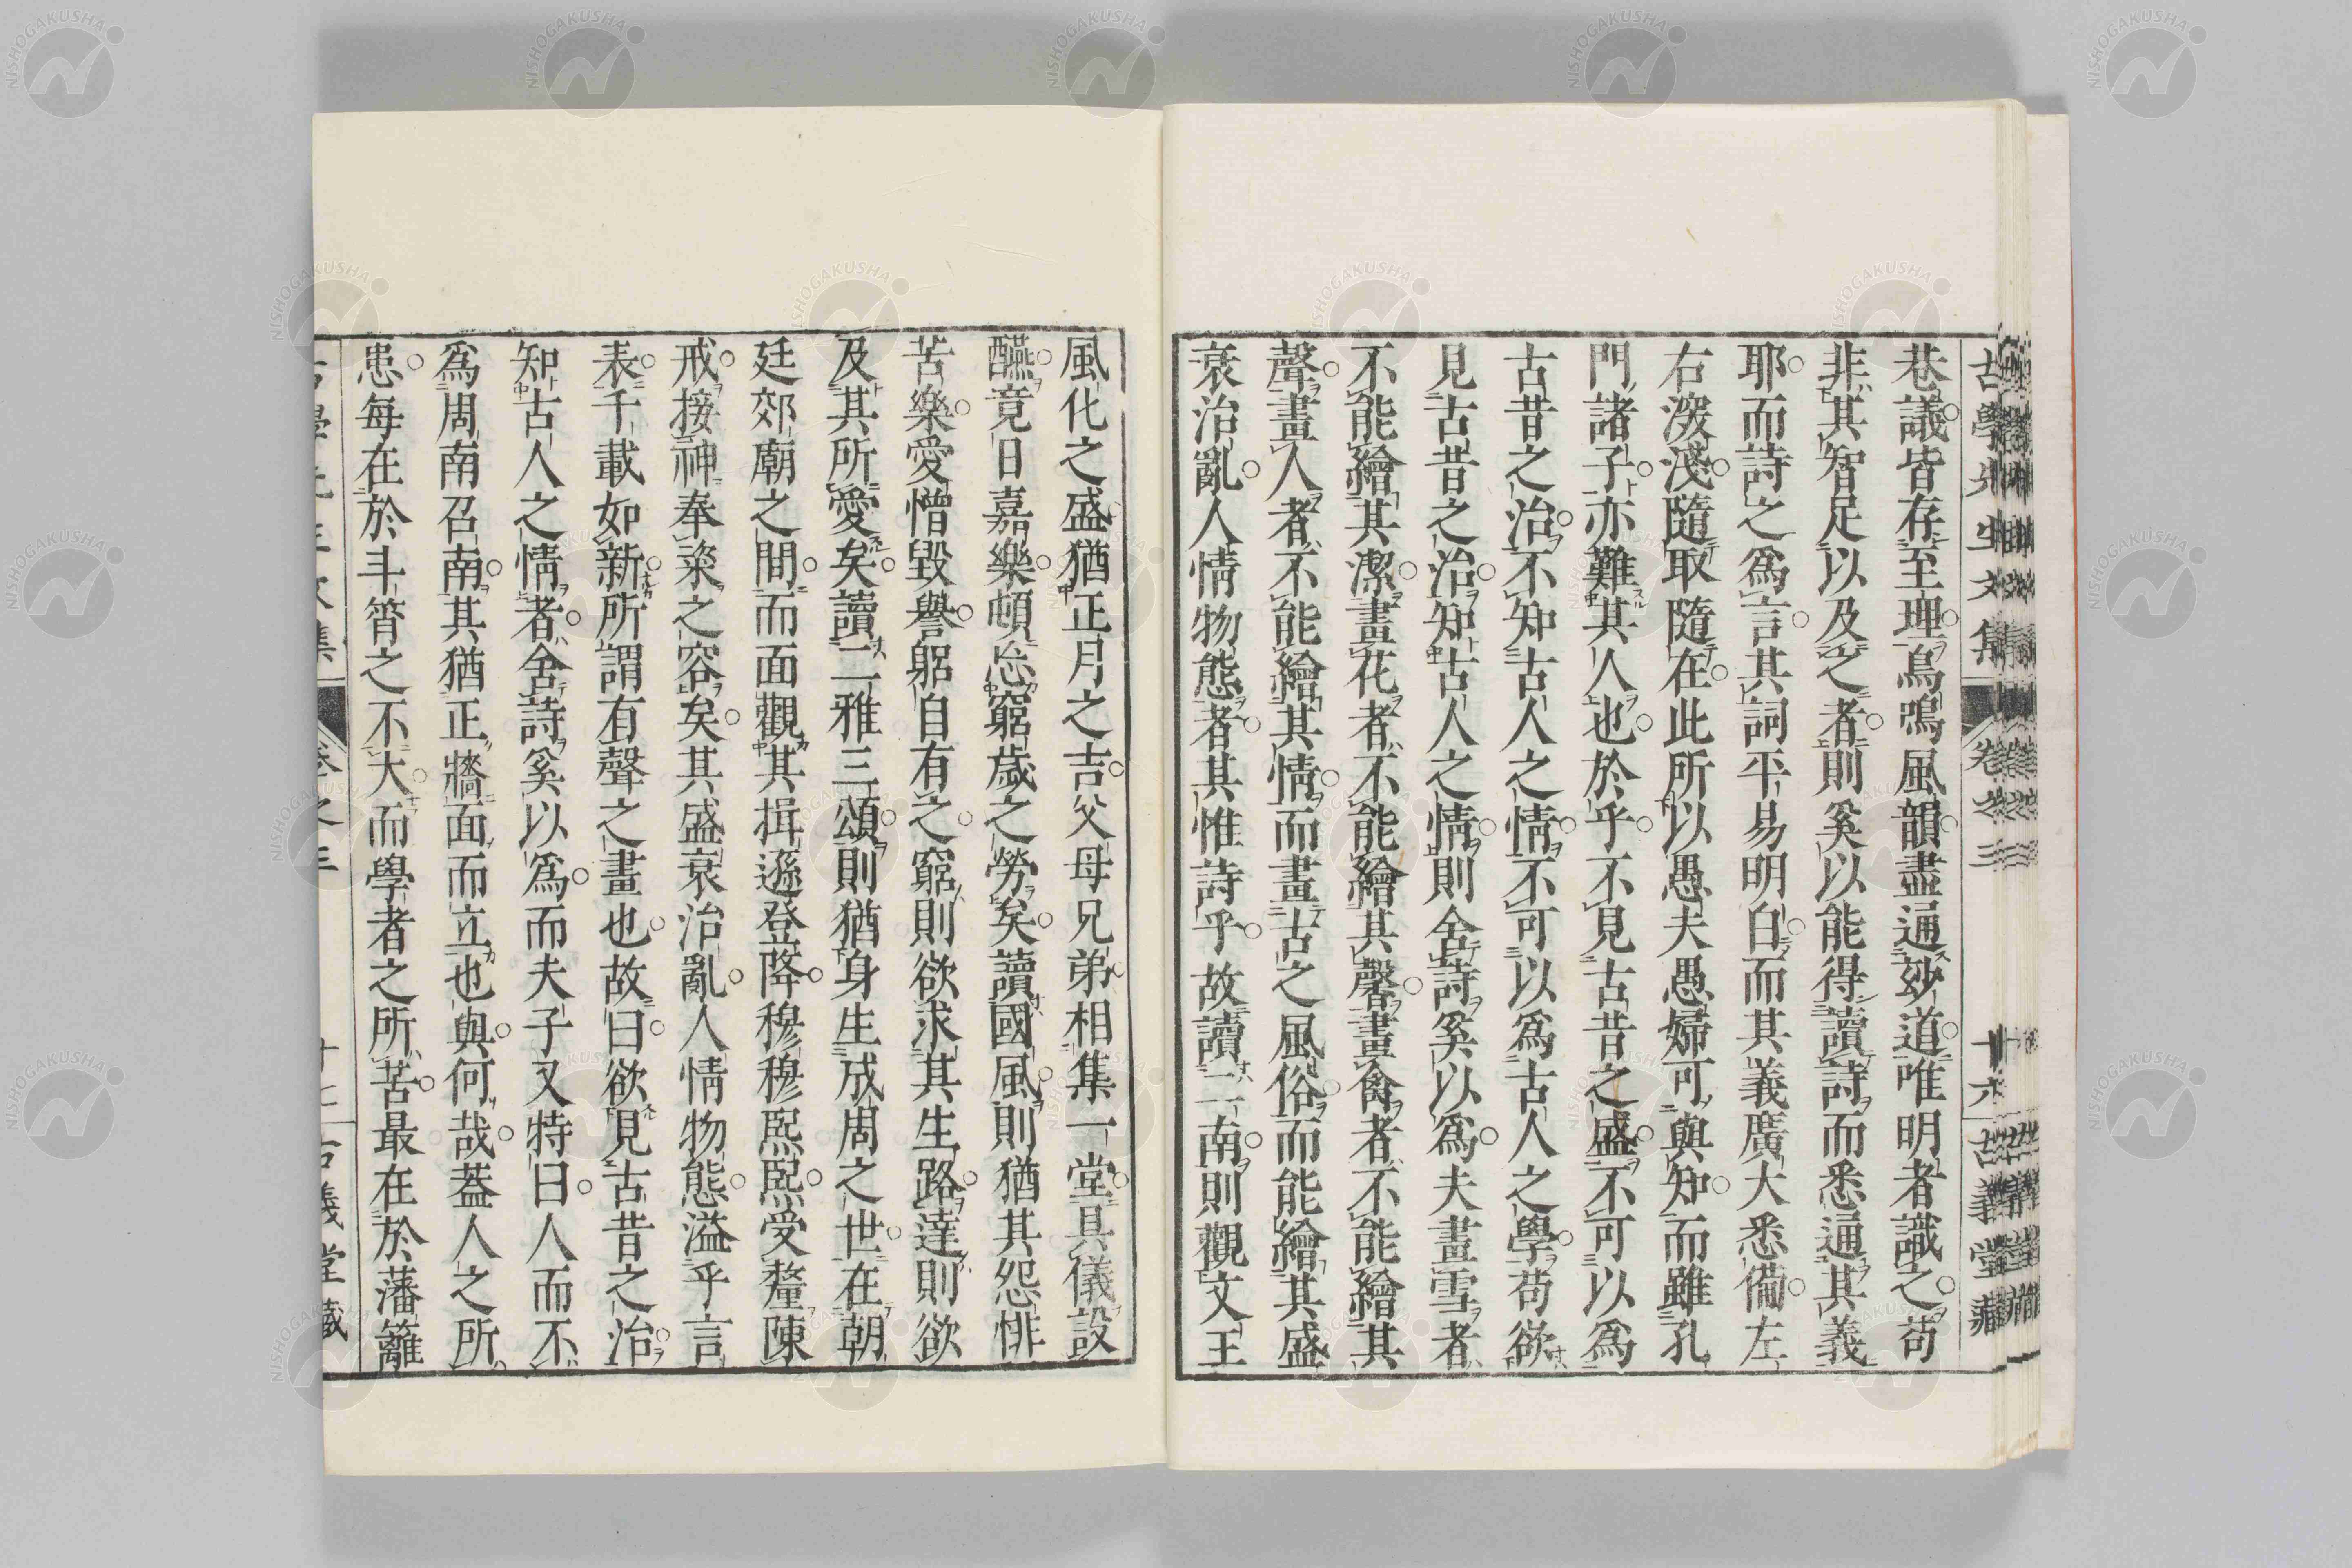 古學先生文集 卷之三 十六 古義堂藏
巷議皆存至理鳥鳴風韻盡通妙道唯明者識之苟
非其智足以及之者則奚以能得讀詩而悉通其義
耶而詩之爲言其詞平易明白而其義廣大悉備左
右深淺隨取隨在此所以愚夫愚婦可與知而雖孔
門諸子亦難其人也於乎不見古昔之盛不可以爲
古昔之治不知古人之情不可以爲古人之學苟欲
見古昔之治知古人之情則舍詩奚以爲夫畫雪者
不能繪其潔畫花者不能繪其馨畫禽者不能繪其
聲畫人者不能繪其情而畫古之風俗而能繪其盛
衰治亂人情物態者其惟詩乎故讀二南則觀文王
風化之盛猶正月之吉父母兄弟相集一堂具儀設
醼竟日嘉樂頓忘窮歲之勞矣讀國風則猶其怨悱
苦樂愛憎毀譽躬自有之窮則欲求其生路達則欲
及其所愛矣讀二雅三頌則猶身生成周之世在朝
廷郊廟之間而面觀其揖遜登降穆穆熙熙受釐陳
戒接神奉粢之容矣其盛衰治亂人情物態溢乎言
表千載如新所謂有聲之畫也故曰欲見古昔之治
知古人之情者舍詩奚以爲而夫子又特曰人而不
爲周南召南其猶正牆面而立也與何哉蓋人之所
患每在於斗筲之不大而學者之所苦最在於藩籬